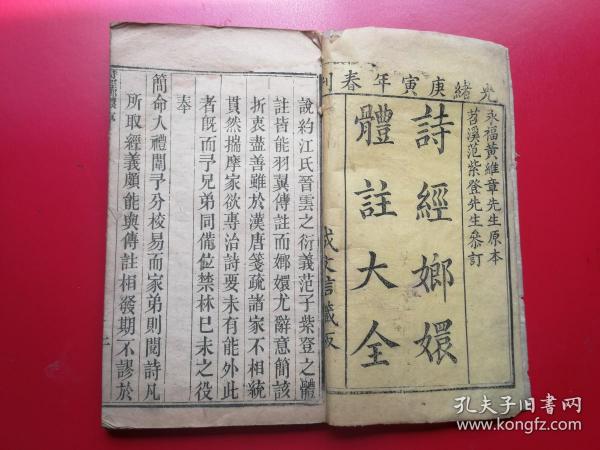 光緒庚寅年春刊
永福黃維章先生原本
苕溪范紫登先生叅訂
詩經嫏嬛
體註大全
成文信藏板
說約江氏晉雲之衍義范子紫登之體
註皆能羽翼傳註而嫏嬛尤辭意簡該
折衷盡善雖於漢唐箋疏諸家不相統
貫然揣摩家欲專治詩要未有能外此
者旣而予兄弟同備位禁林巳未之役
奉
簡命入禮闈予分校易而家弟則閱詩凡
所取經義頗能與傳註相發期不謬於
孔夫子旧书网
www.kongfz.com